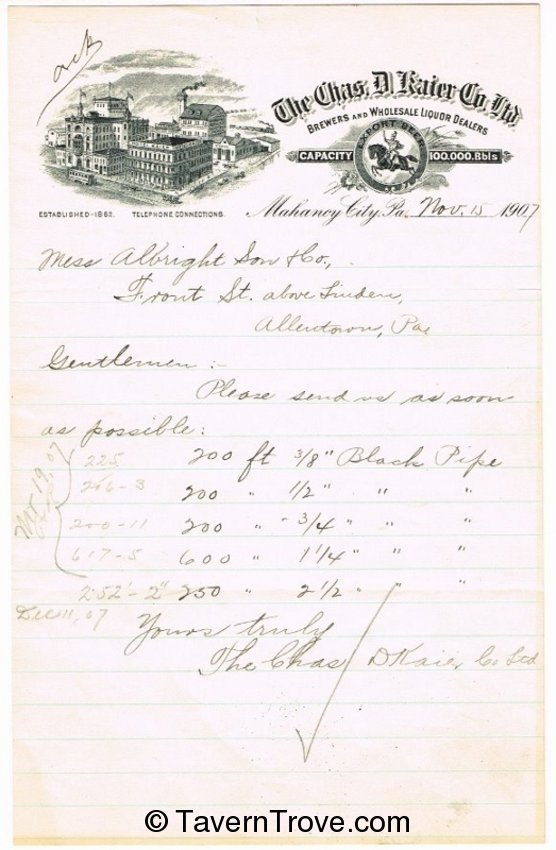 ack
The Chas. D. Kaier Co. Ltd.
BREWERS AND WHOLESALE LIQUOR DEALERS
EXPORT BEER
CAPACITY 100.000.Bbls
ESTABLISHED-1862. TELEPHONE CONNECTIONS.
Mahanoy City, Pa. Nov. 15 1907
Mess Albright Son & Co.,
Front St. above Linden,
Allentown, Pa
Gentlemen :-
Please send us as soon
as possible:
225 200 ft 3/8" Black Pipe
206-3 200 " 1/2" " "
200-11 200 " 3/4" " "
617-5 600 " 1 1/4" " "
252'-2" 250 " 2 1/2" " "
19, 07
Dec 11, 07
Yours truly
The Chas D Kaier Co Ltd
© TavernTrove.com